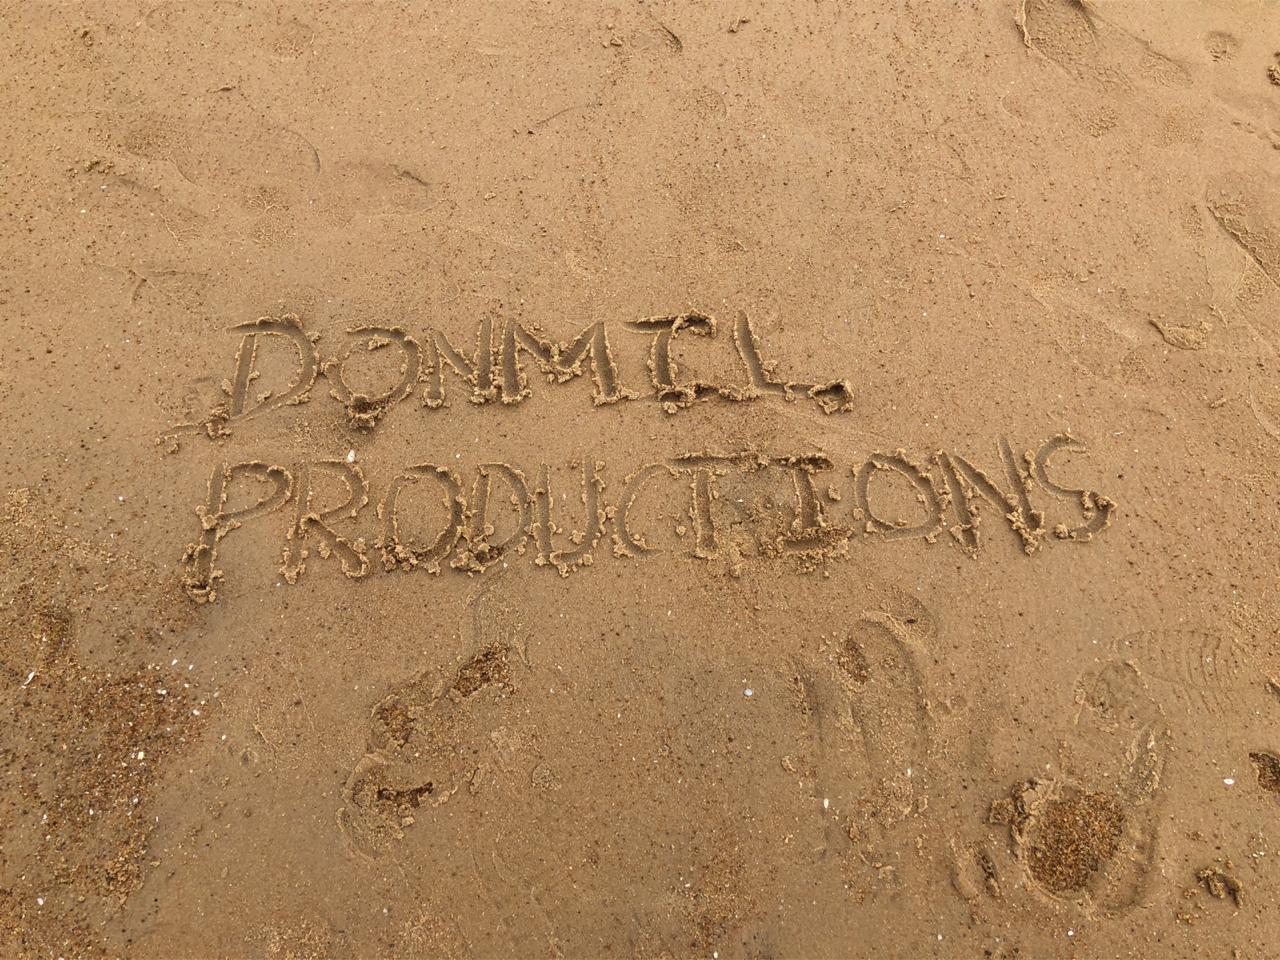 DONMIL
PRODUCTIONS